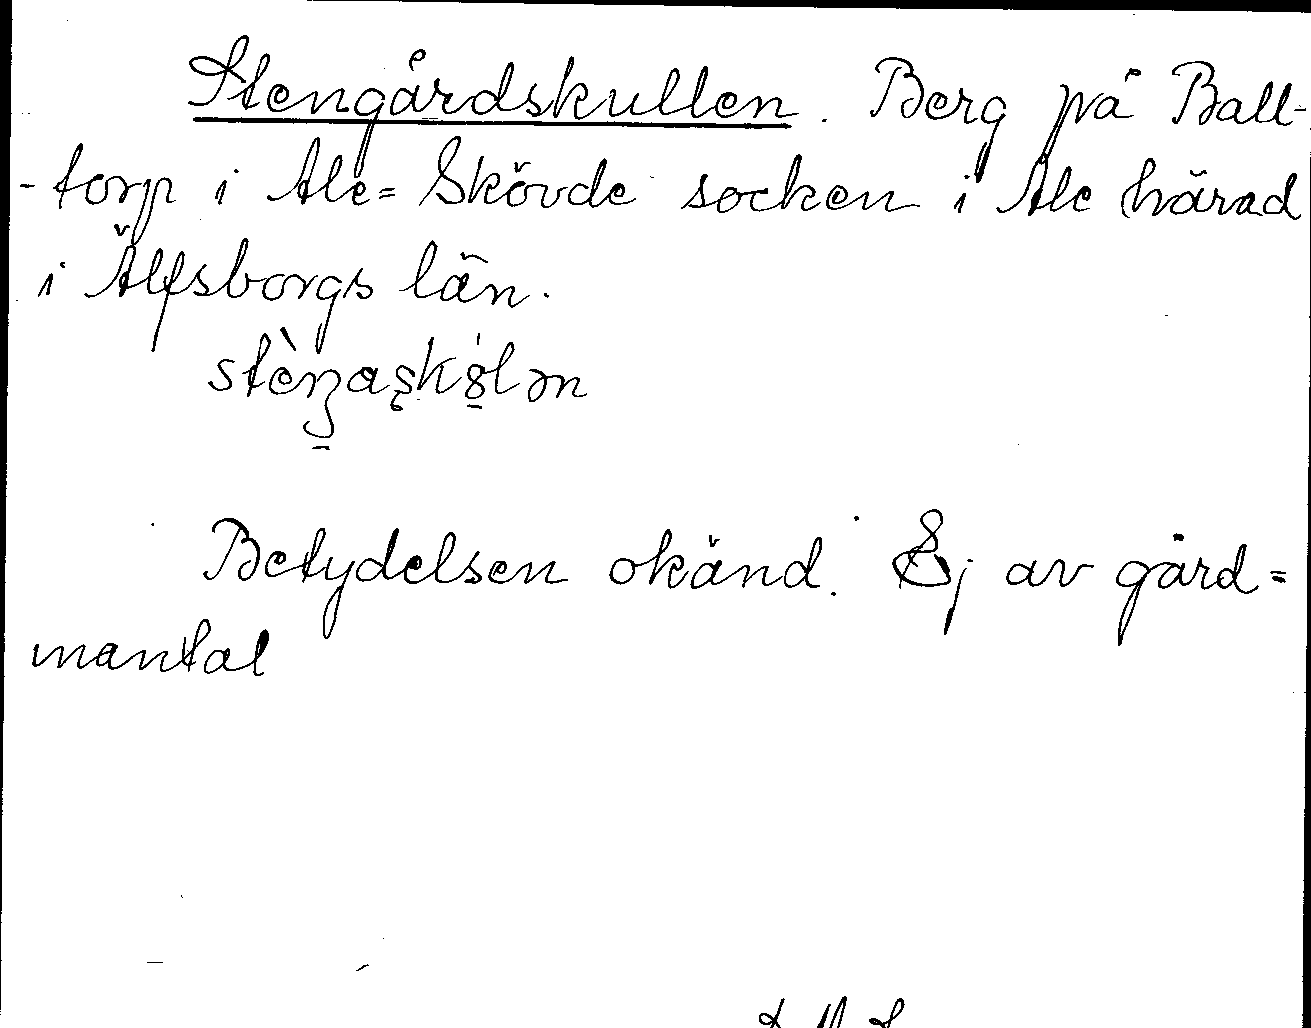 Stengårdskullen. Berg på Ball-
-torp i Ale=Skövde socken i Ale härad
i Älfsborgs län.
Betydelsen okänd. Ej av gård=
mantal